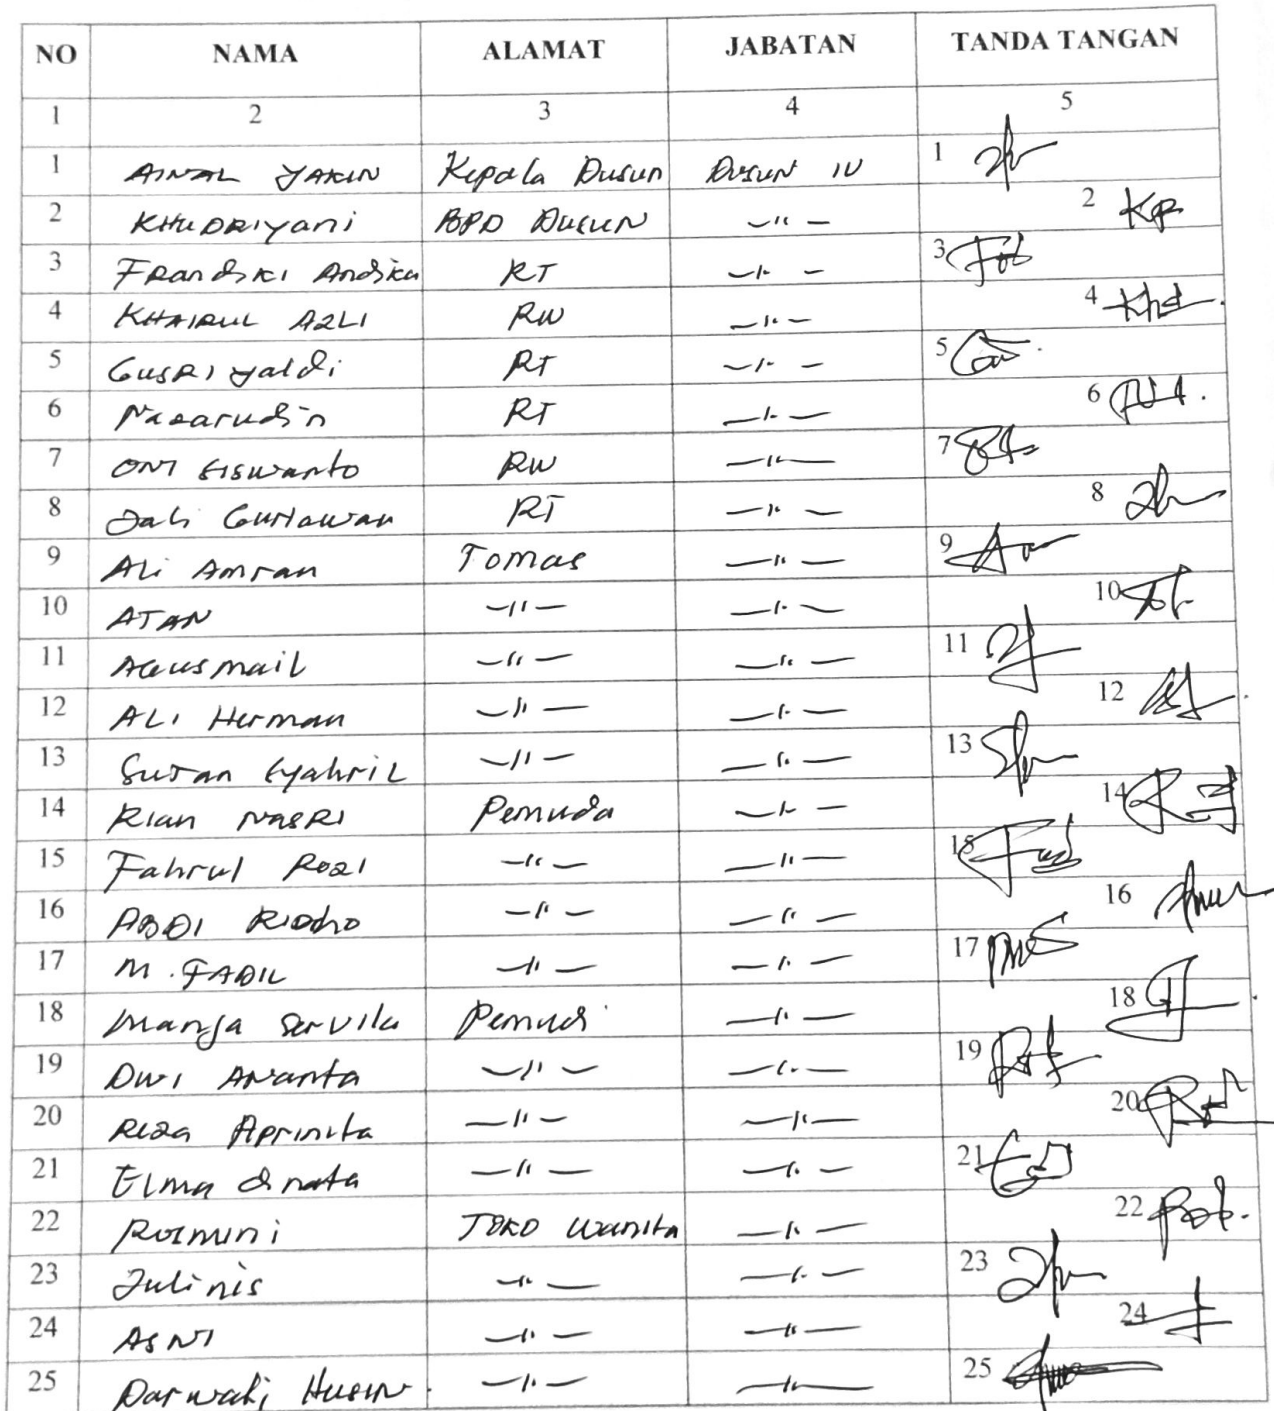 NO NAMA ALAMAT JABATAN TANDA TANGAN
1 2 3 4 5
1 AINAL YAKIN Kepala Dusun Dusun IV 1
2 KHUDRIYani BPD DUSUN -"- 2
3 FRandski Andika RT -"- 3
4 KHAIRUL AZLI RW -"- 4
5 GUSRIyaldi RT -"- 5
6 Nazarudin RT -"- 6
7 ONI SISwanto RW -"- 7
8 Jali Gunawan RT -"- 8
9 Ali Amran Tomas -"- 9
10 ATAN -"- -"- 10
11 AGusmail -"- -"- 11
12 ALI Herman -"- -"- 12
13 Sutan Syahril -"- -"- 13
14 Rian NASRI Pemuda -"- 14
15 Fahrul Rozi -"- -"- 15
16 ABDI RIDHO -"- -"- 16
17 M. FADIL -"- -"- 17
18 Manja Servila Pemudi -"- 18
19 DWI Ananta -"- -"- 19
20 Reza Aprinita -"- -"- 20
21 Elma -"- -"- 21
22 Rosmini TOKO Wanita -"- 22
23 Julinis -"- -"- 23
24 ASNI -"- -"- 24
25 Darwati Husin -"- -"- 25